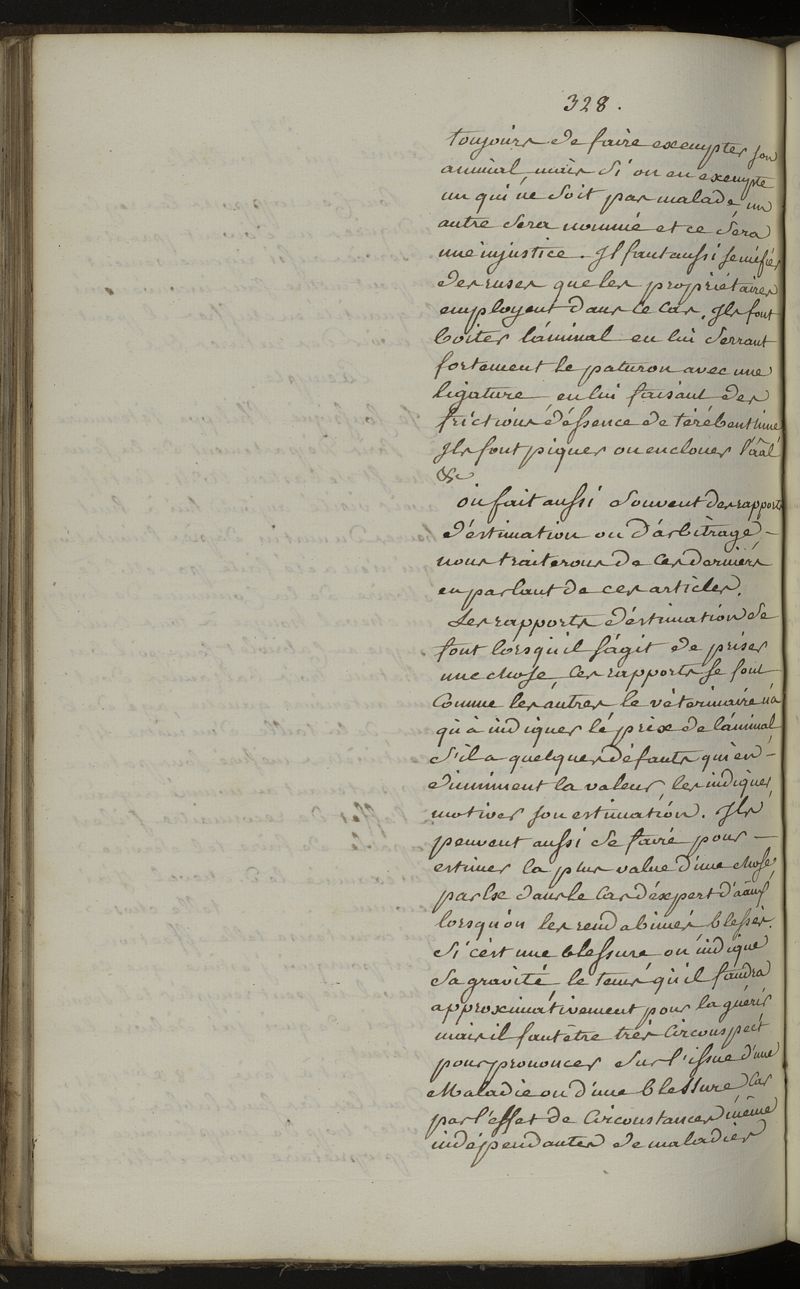 328.
toujours de faire exempter son
animal mais si on en exempte
un qui ne soit pas malade un
autre sera nommé et ce sera
une injustice. Il faut aussi se méfier
des ruses que les propriétaires
employent dans ce cas. Ils font
boiter l'animal en lui serrant
fortement le paturon avec une
ligature, en lui faisant des
frictions d'éssence de térébenthine
Ils font piquer ou enclouer l'aāl
&c
on fait aussi souvent des rapports
d'éstimation ou d'arbitrage –
nous traiterons de ces derniers
en parlant de ces articles.
Les rapports d'éstimation se
font lorsqu'il s'agit de priser
une chose, ces rapports se font
comme les autres le vétérinaire n'a
qu'à indiquer le prix de l'animal
s'il a quelques défauts qui en –
diminuent la valeur, les indiquer
motiver son estimation. Ils
peuvent aussi se faire pour –
estimer la plus value d'une chose
par Ex dans le cas d'éxpert d'aāux
lorsqu'on les rend abimés, blessés.
Si c'est une blessure on indique
sa gravité le tems qu'il faudra
approximativement pour la guérir
mais il faut être très circonspect
pour prononcer sur l'issue d'une
Maladie ou d'une blessure car
par l'effet de circonstances même
indépendantes de maladies